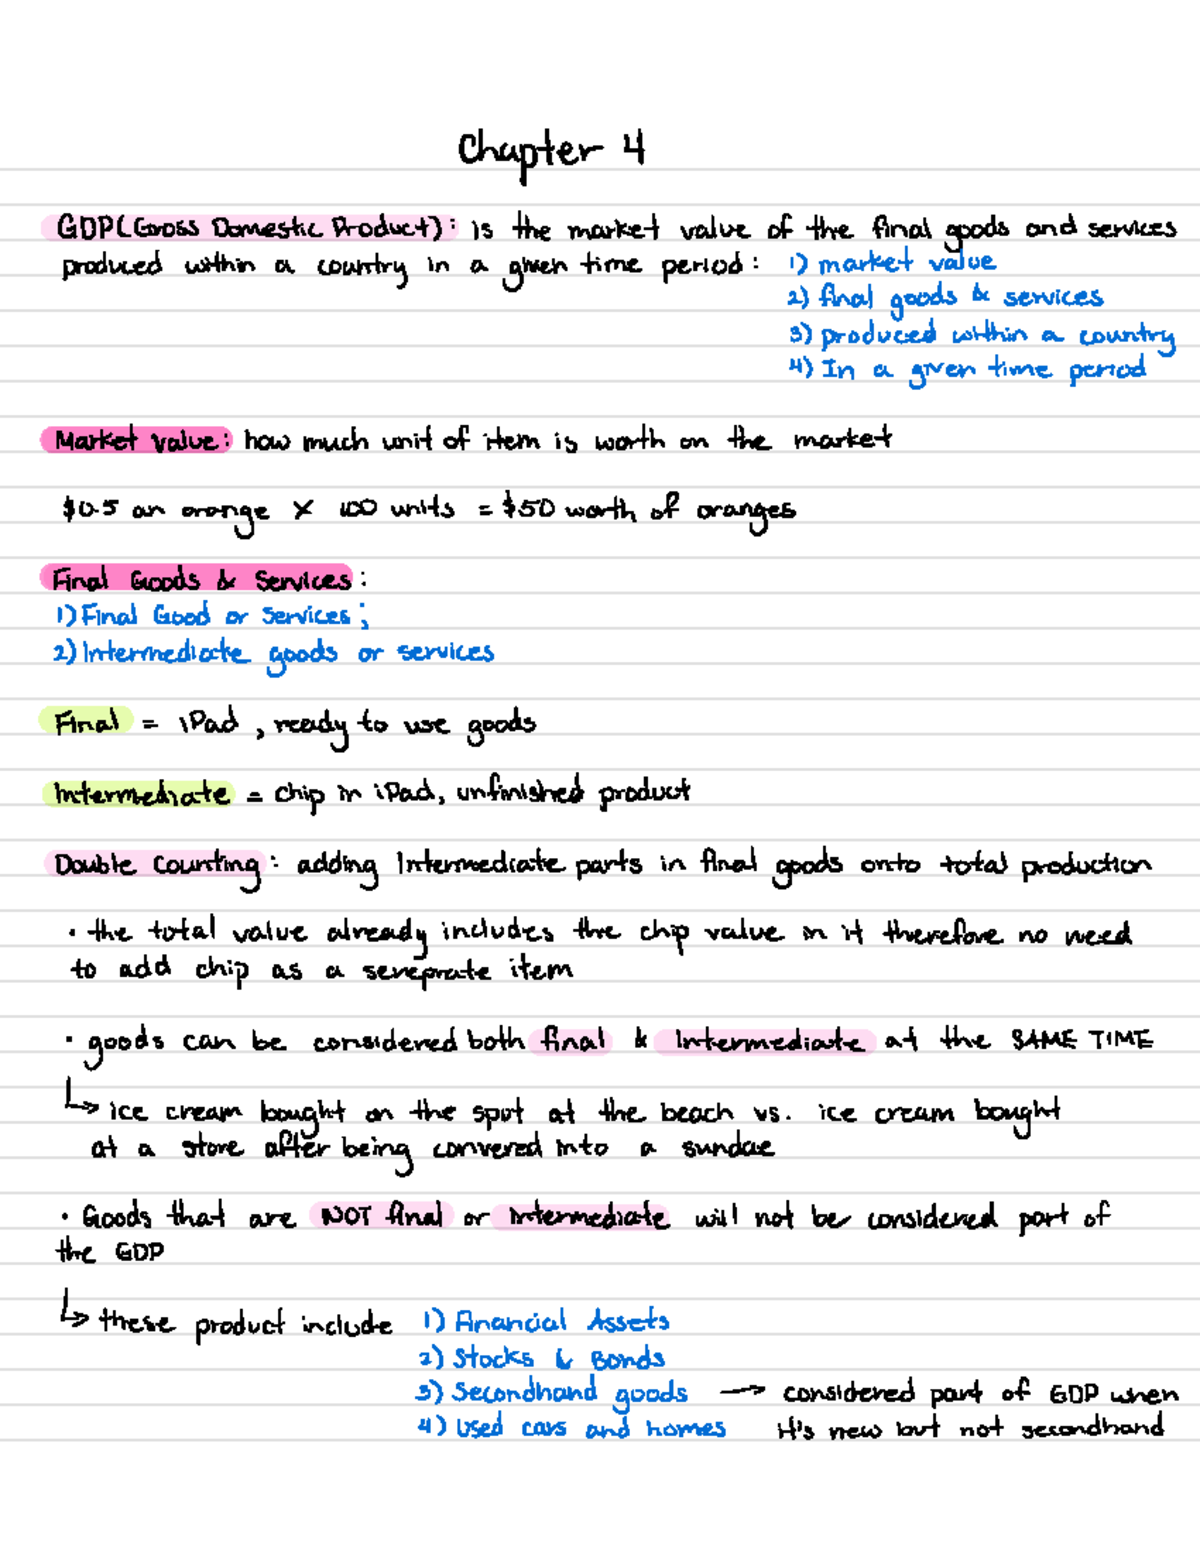 Chapter 4
GDP(Gross Domestic Product): is the market value of the final goods and services
produced within a country in a given time period: 1) market value
2) final goods & services
3) produced within a country
4) In a given time period
Market value: how much unit of item is worth on the market
$0.5 an orange × 100 units = $50 worth of oranges
Final Goods & Services:
1) Final Good or Services;
2) Intermediate goods or services
Final = iPad, ready to use goods
Intermediate = chip in iPad, unfinished product
Double Counting: adding Intermediate parts in final goods onto total production
• the total value already includes the chip value in it therefore no need
to add chip as a sereprate item
• goods can be considered both final & Intermediate at the SAME TIME
↳ ice cream bought on the spot at the beach vs. ice cream bought
at a store after being convered into a sundae
• Goods that are NOT final or Intermediate will not be considered part of
the GDP
↳ these product include 1) Financial Assets
2) Stocks & Bonds
3) Secondhand goods → considered part of GDP when
4) Used cars and homes it's new but not secondhand